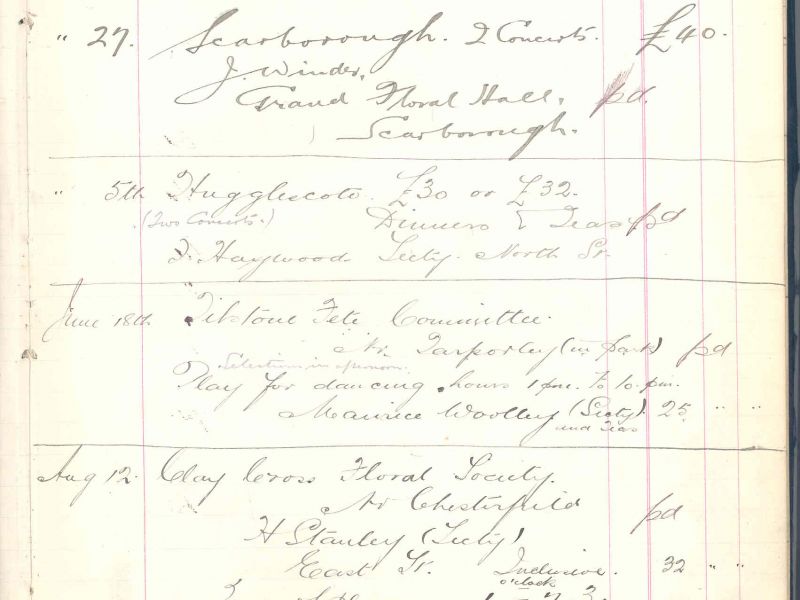 " 27. Scarborough. 2 Concerts. £40.
J. Winder,
Grand Floral Hall, pd.
Scarborough.
" 5th Hugglescote. £30 or £32.
(Two Concerts.) Dinners & Teas pd
F. Haywood Secty. North St.
June 18th Tilstone Fete Committee.
Nr. Tarporley (in Park) pd
Selections in afternoon.
Play for dancing. hours 1 pm. to 10. pm.
Maurice Woolley (Secty). 25 " "
and Teas
Aug 12. Clay Cross Floral Society.
Nr Chesterfield
pd
H Stanley (Secty)
East St. Inclusive. 32 " "
o'clock